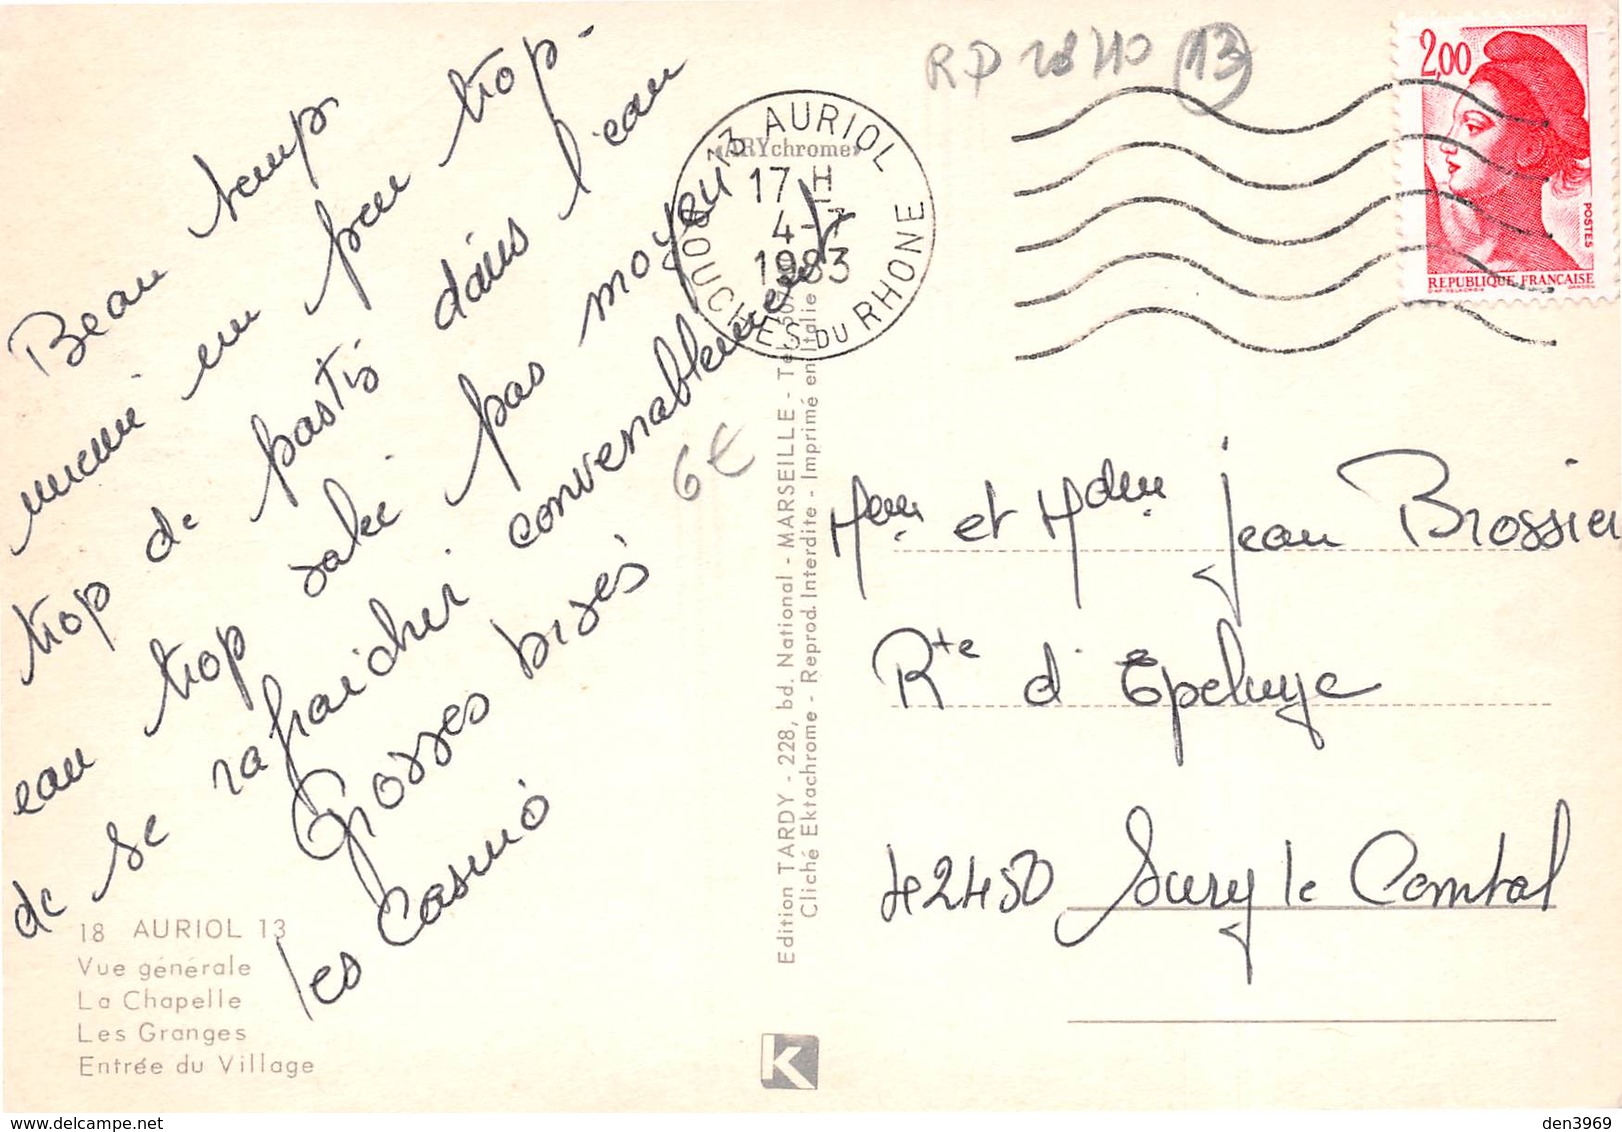 Beau temps
même un peu trop-
trop de pastis dans l'eau
eau trop salée pas moyen
de se rafraichir convenablement
Grosses bises
les Casmó
18 AURIOL 13
Vue générale
La Chapelle
Les Granges
Entrée du Village
«ARYchrome»
13 AURIOL
17 H
4-7
1983
BOUCHES DU RHONE
6€
Edition TARDY - 228, bd. National - MARSEILLE - Te
Cliché Ektachrome - Reprod. Interdite - Imprimé en Italie
K
RP 18/10 (13)
2,00
POSTES
REPUBLIQUE FRANÇAISE
et Jean Brossier
Rte d'Epeluye
42450 Sury le Comtal
den3969